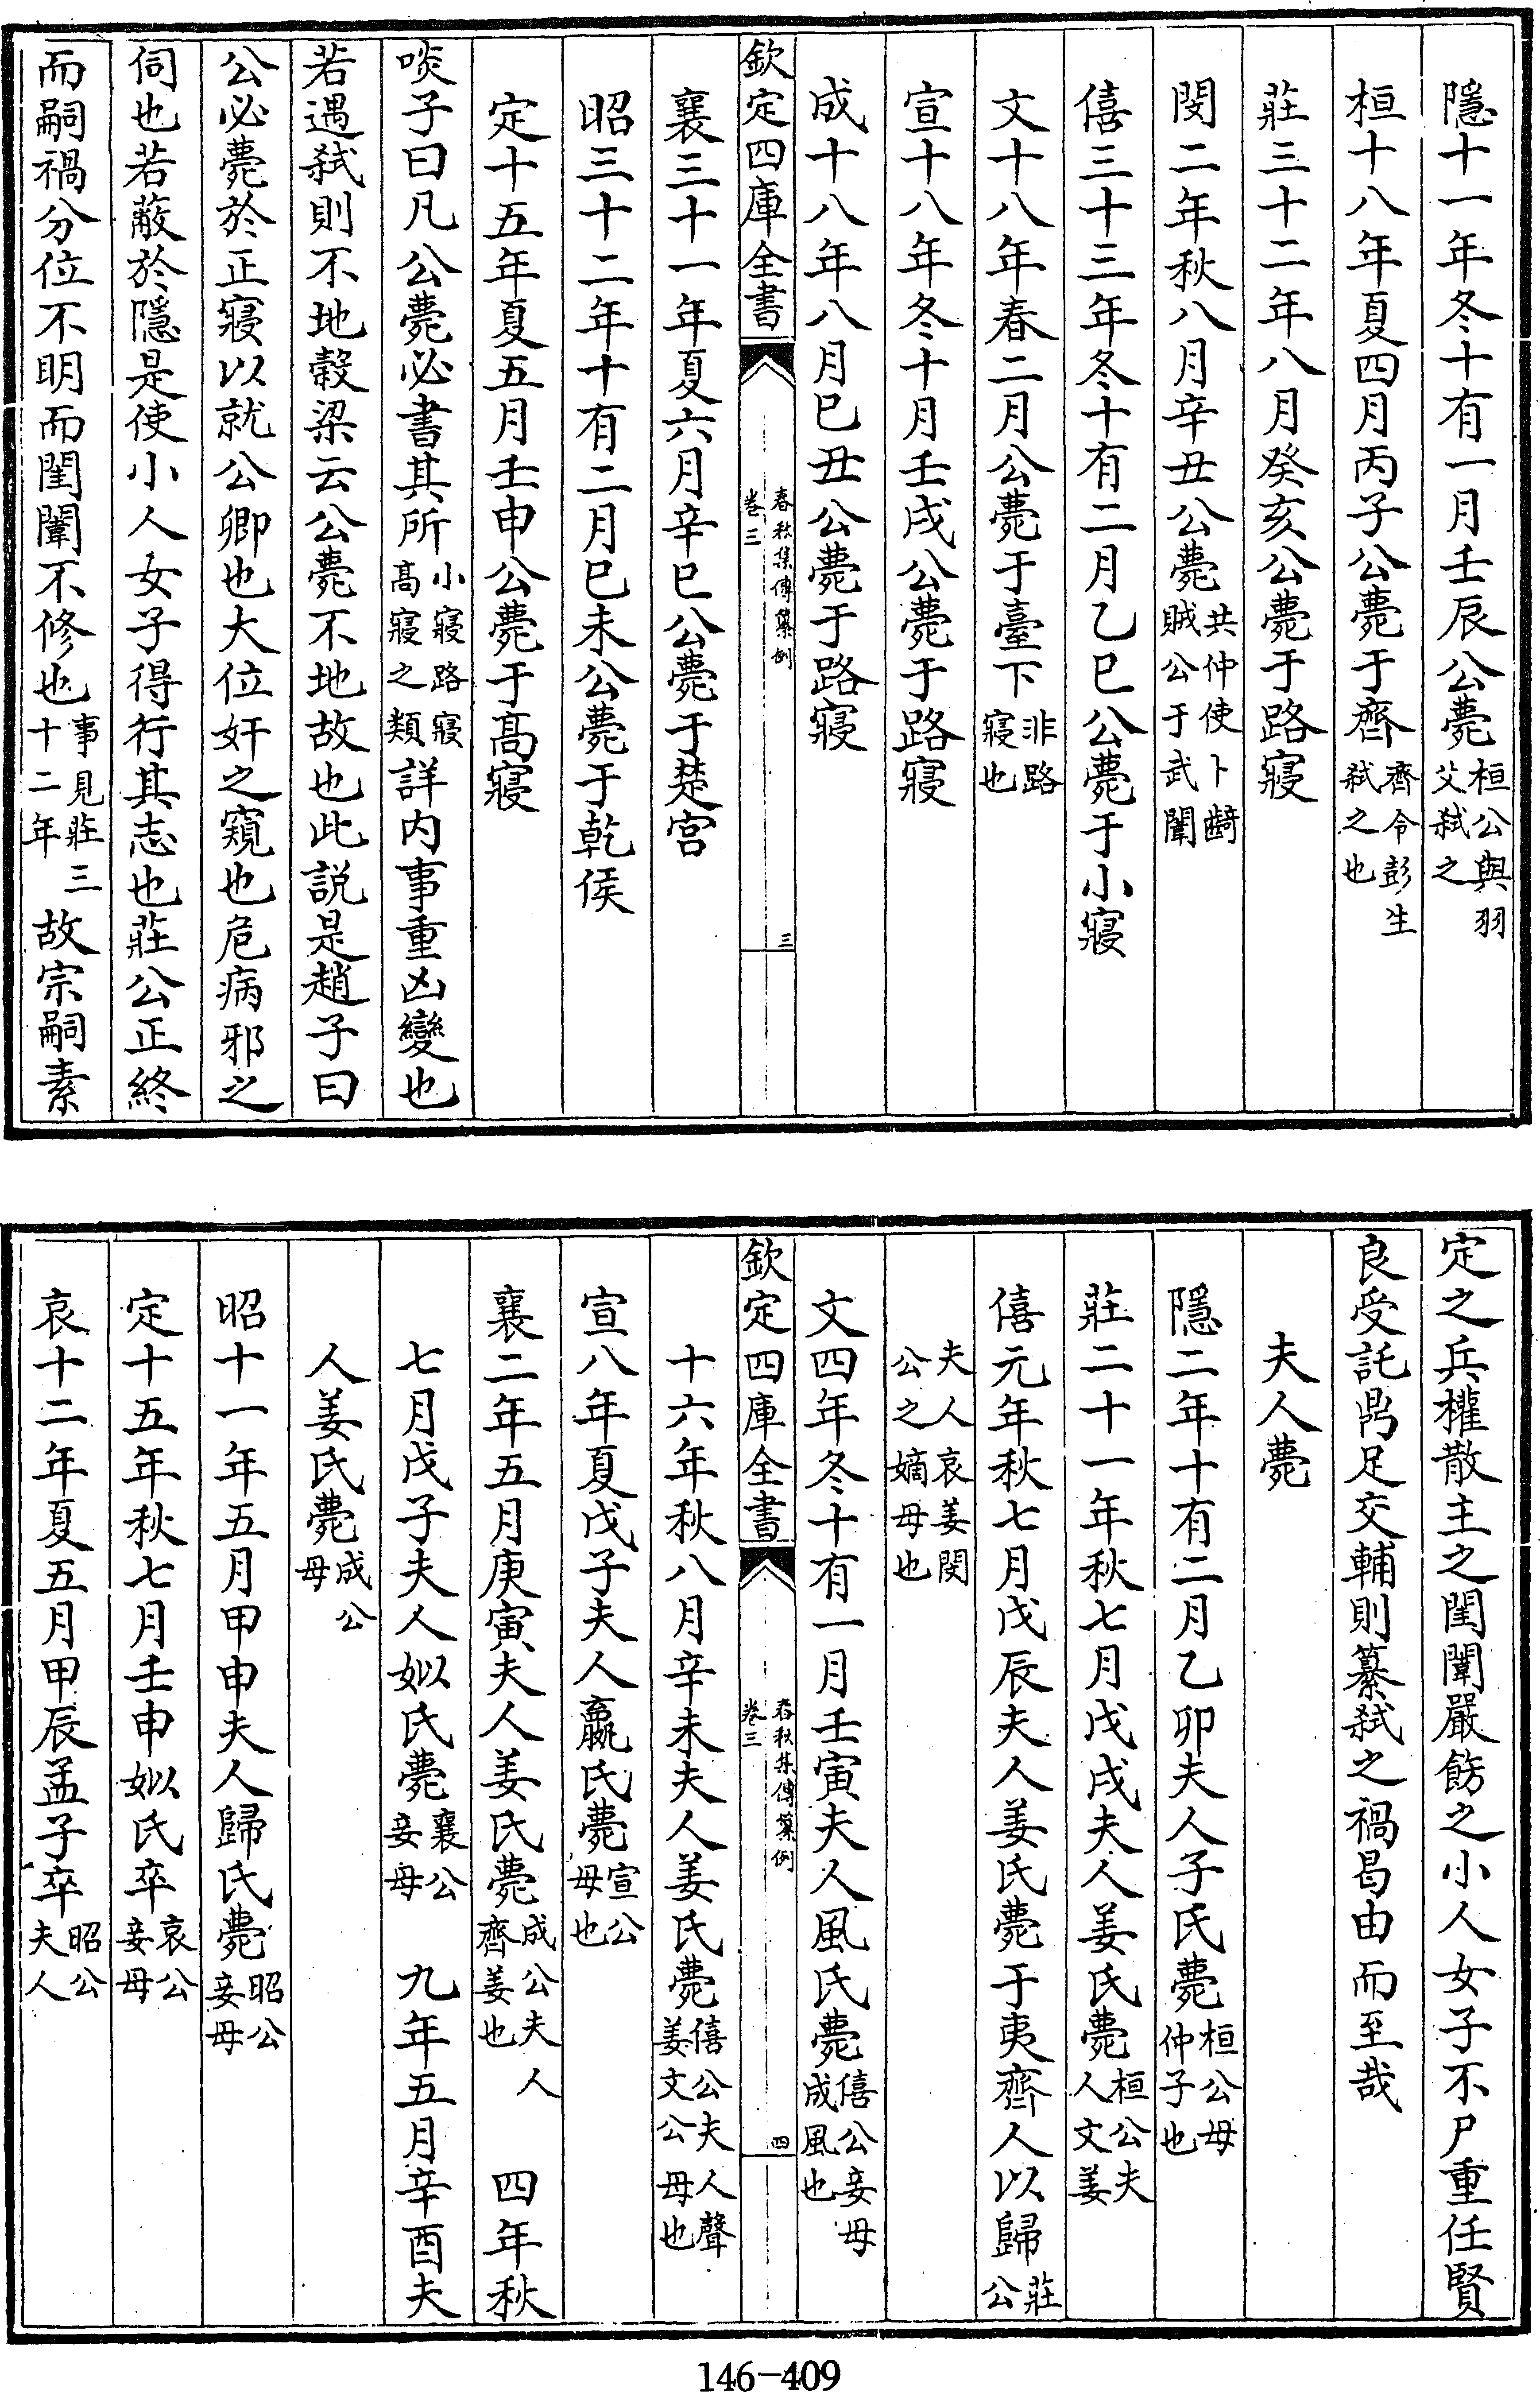 隱十一年冬十有一月壬辰公薨桓公與羽父弑之
桓十八年夏四月丙子公薨于齊齊令彭生弑之也
莊三十二年八月癸亥公薨于路寢
閔二年秋八月辛丑公薨共仲使卜齮賊公于武闈
僖三十三年冬十有二月乙巳公薨于小寢
文十八年春二月公薨于臺下非路寢也
宣十八年冬十月壬戌公薨于路寢
成十八年八月己丑公薨于路寢
欽定四庫全書
春秋集傳纂例
卷三
三
襄三十一年夏六月辛巳公薨于楚宮
昭三十二年十有二月己未公薨于乾侯
定十五年夏五月壬申公薨于高寢
啖子曰凡公薨必書其所小寢路寢高寢之類詳内事重凶變也
若遇弑則不地穀梁云公薨不地故也此説是趙子曰
公必薨於正寢以就公卿也大位奸之窺也危病邪之
伺也若蔽於隱是使小人女子得行其志也莊公正終
而嗣禍分位不明而閨闈不修也事見莊三十二年故宗嗣素
定之兵權散主之閨闈嚴飭之小人女子不尸重任賢
良受託鼎足交輔則纂弑之禍曷由而至哉
夫人薨
隱二年十有二月乙卯夫人子氏薨桓公母仲子也
莊二十一年秋七月戊戌夫人姜氏薨桓公夫人文姜
僖元年秋七月戊辰夫人姜氏薨于夷齊人以歸莊公
夫人哀姜閔公之嫡母也
文四年冬十有一月壬寅夫人風氏薨僖公妾母成風也
欽定四庫全書
春秋集傳纂例
卷三
四
十六年秋八月辛未夫人姜氏薨僖公夫人聲姜文公母也
宣八年夏戊子夫人嬴氏薨宣公母也
襄二年五月庚寅夫人姜氏薨成公夫人齊姜也 四年秋
七月戊子夫人姒氏薨襄公妾母 九年五月辛酉夫
人姜氏薨成公母
昭十一年五月甲申夫人歸氏薨昭公妾母
定十五年秋七月壬申姒氏卒哀公妾母
哀十二年夏五月甲辰孟子卒昭公夫人
146-409